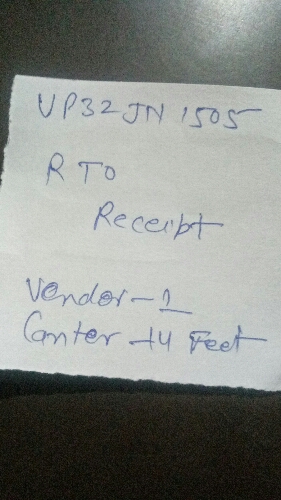 UP32JN 1505
RTO
Receipt
Vendor - 1
Canter - 14 Feet